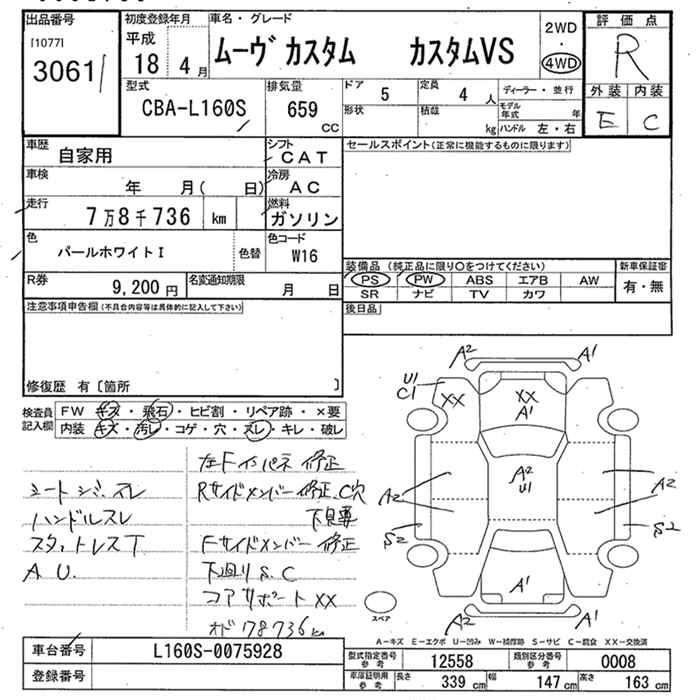 出品番号
[1077]
3061
初度登録年月
平成
18 4月
車名・グレード
ムーヴ カスタム カスタムVS
2WD
・
4WD
評価点
R
外装 内装
E C
型式
CBA-L160S
排気量
659
CC
ドア 5
定員 4 人
ディーラー・並行
形状
積載 kg
モデル年式 年
ハンドル 左・右
車歴 自家用
シフト CAT
車検 年 月( 日)
冷房 AC
走行 7万8千736 km
燃料 ガソリン
色 パールホワイトI
色替
色コード W16
R券 9,200 円
名変通知期限 月 日
セールスポイント(正常に機能するものに限ります)
装備品(純正品に限り○をつけてください)
新車保証書
PS PW ABS エアB AW
有・無
SR ナビ TV カワ
後日品
注意事項申告欄(不具合内容等は具体的に記入して下さい)
修復歴 有〔箇所 〕
検査員記入欄
FW キズ・飛石・ヒビ割・リペア跡・×要
内装 キズ・汚レ・コゲ・穴・スレ・キレ・破レ
左Fインパネ 修正
シートシミ.スレ
Rサイドメンバー 修正.C穴
ハンドルスレ
下見要
スタットレスT
Fサイドメンバー 修正
A U.
下廻り S.C
コアサポート XX
オド178736km
A2 A1
U1
C1
XX
XX
A1
A2
U1
A2 A2
S2 S2
A1
A2 A1
スペア
A-キズ E-エクボ U-凹み W-補修跡 S-サビ C-腐食 XX-交換済
車台番号 L160S-0075928
登録番号
型式指定番号参考 12558
類別区分番号参考 0008
車庫証明用参考 長さ 339 cm 幅 147 cm 高さ 163 cm